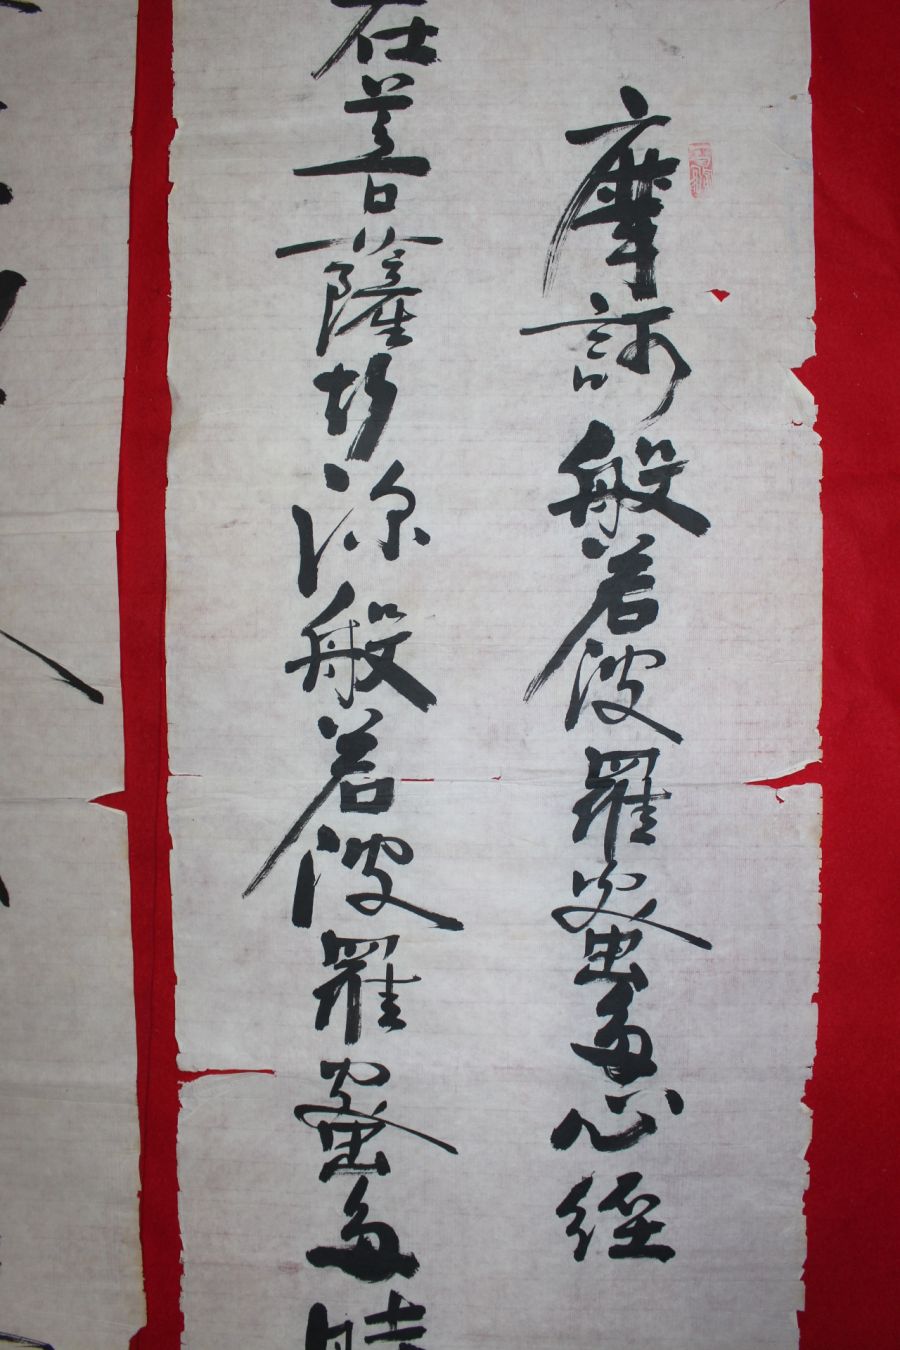 摩訶般若波羅蜜多心經
在菩薩行深般若波羅蜜多時